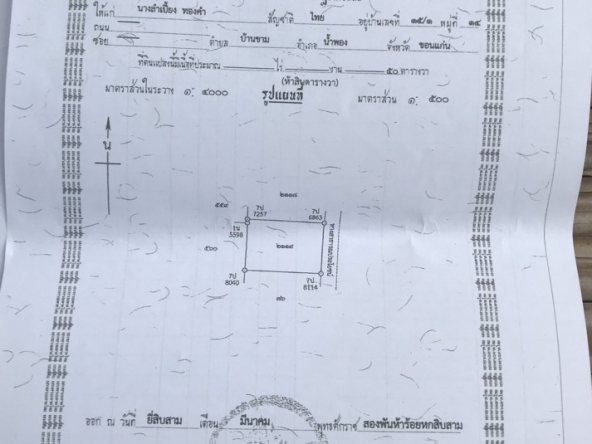 ให้แก่ นางลำเปี้ยง ทองคำ สัญชาติ ไทย อยู่บ้านเลขที่ ๑๕/๑ หมู่ที่ ๑๔
ถนน
ซอย ตำบล บ้านขาม อำเภอ น้ำพอง จังหวัด ขอนแก่น
ที่ดินแปลงนี้มีเนื้อที่ประมาณ ไร่ งาน ๕๐ ตารางวา
(ห้าสิบตารางวา)
มาตราส่วนในระวาง ๑: ๔๐๐๐ รูปแผนที่ มาตราส่วน ๑: ๕๐๐
น
๒๑๑๘
๕๕๙ 7ป 7ป
7257 6863
1น
3598
๕๖๐ ๒๑๑๙
7ป 7ป
8040 8114
๗๖
ออก ณ วันที่ ยี่สิบสาม เดือน มีนาคม พุทธศักราช สองพันห้าร้อยหกสิบสาม